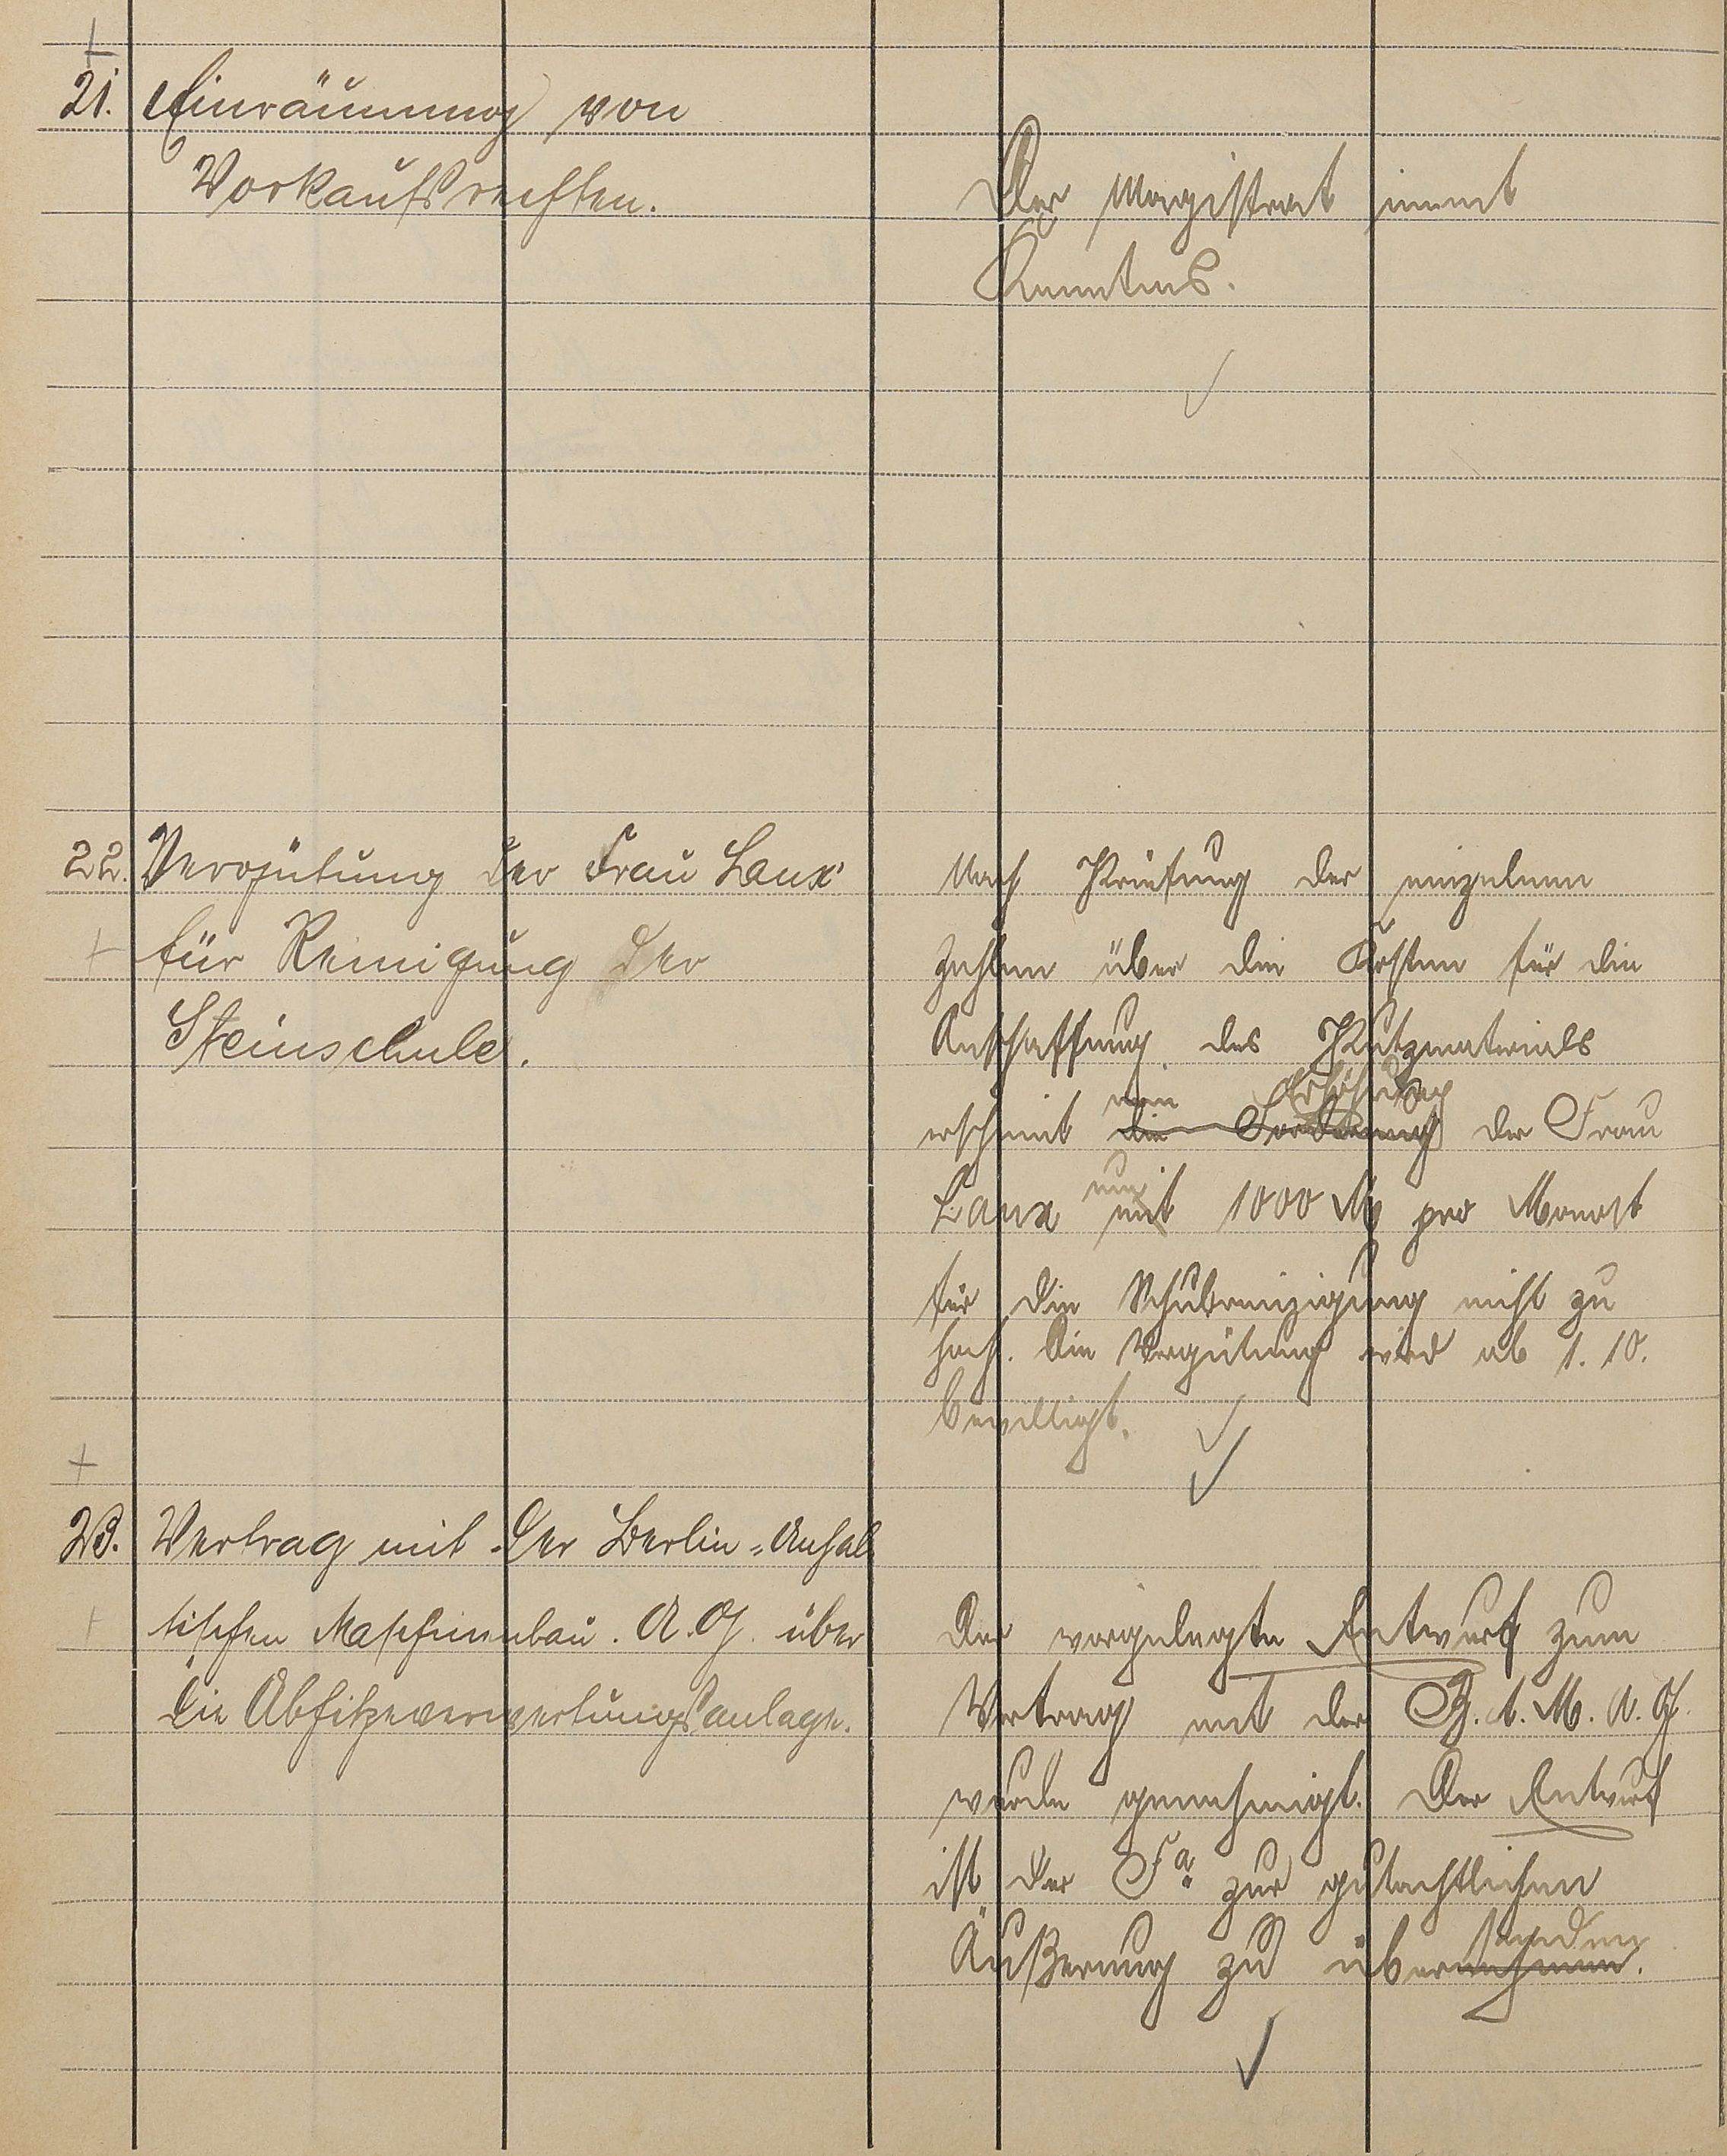 21. Einräumung von
Vorkaufsrechten.
Der Magistrat nimmt
Kenntnis.
22. Vergütung der Frau Laux
für Reinigung der
Steinschule.
Nach Prüfung der einzelnen
Zahlen über die Kosten für die
Anschaffung des Putzmaterials
eine Erhöhung
erscheint die Forderung der Frau
um
Laux mit 1000 M pro Monat
für die Schulreinigung nicht zu
hoch. Die Vergütung wird ab 1. 10.
bewilligt.
23. Vertrag mit der Berlin-Anhal
tischen Maschinenbau. A.G. über
die Abhitzeverwertungsanlage.
Der vorgelegte Entwurf zum
Vertrag mit der B. A. M. A. G.
wurde genehmigt. Der Entwurf
ist der Fa. zur gutachtlichen
senden
Äußerung zu übernehmen.